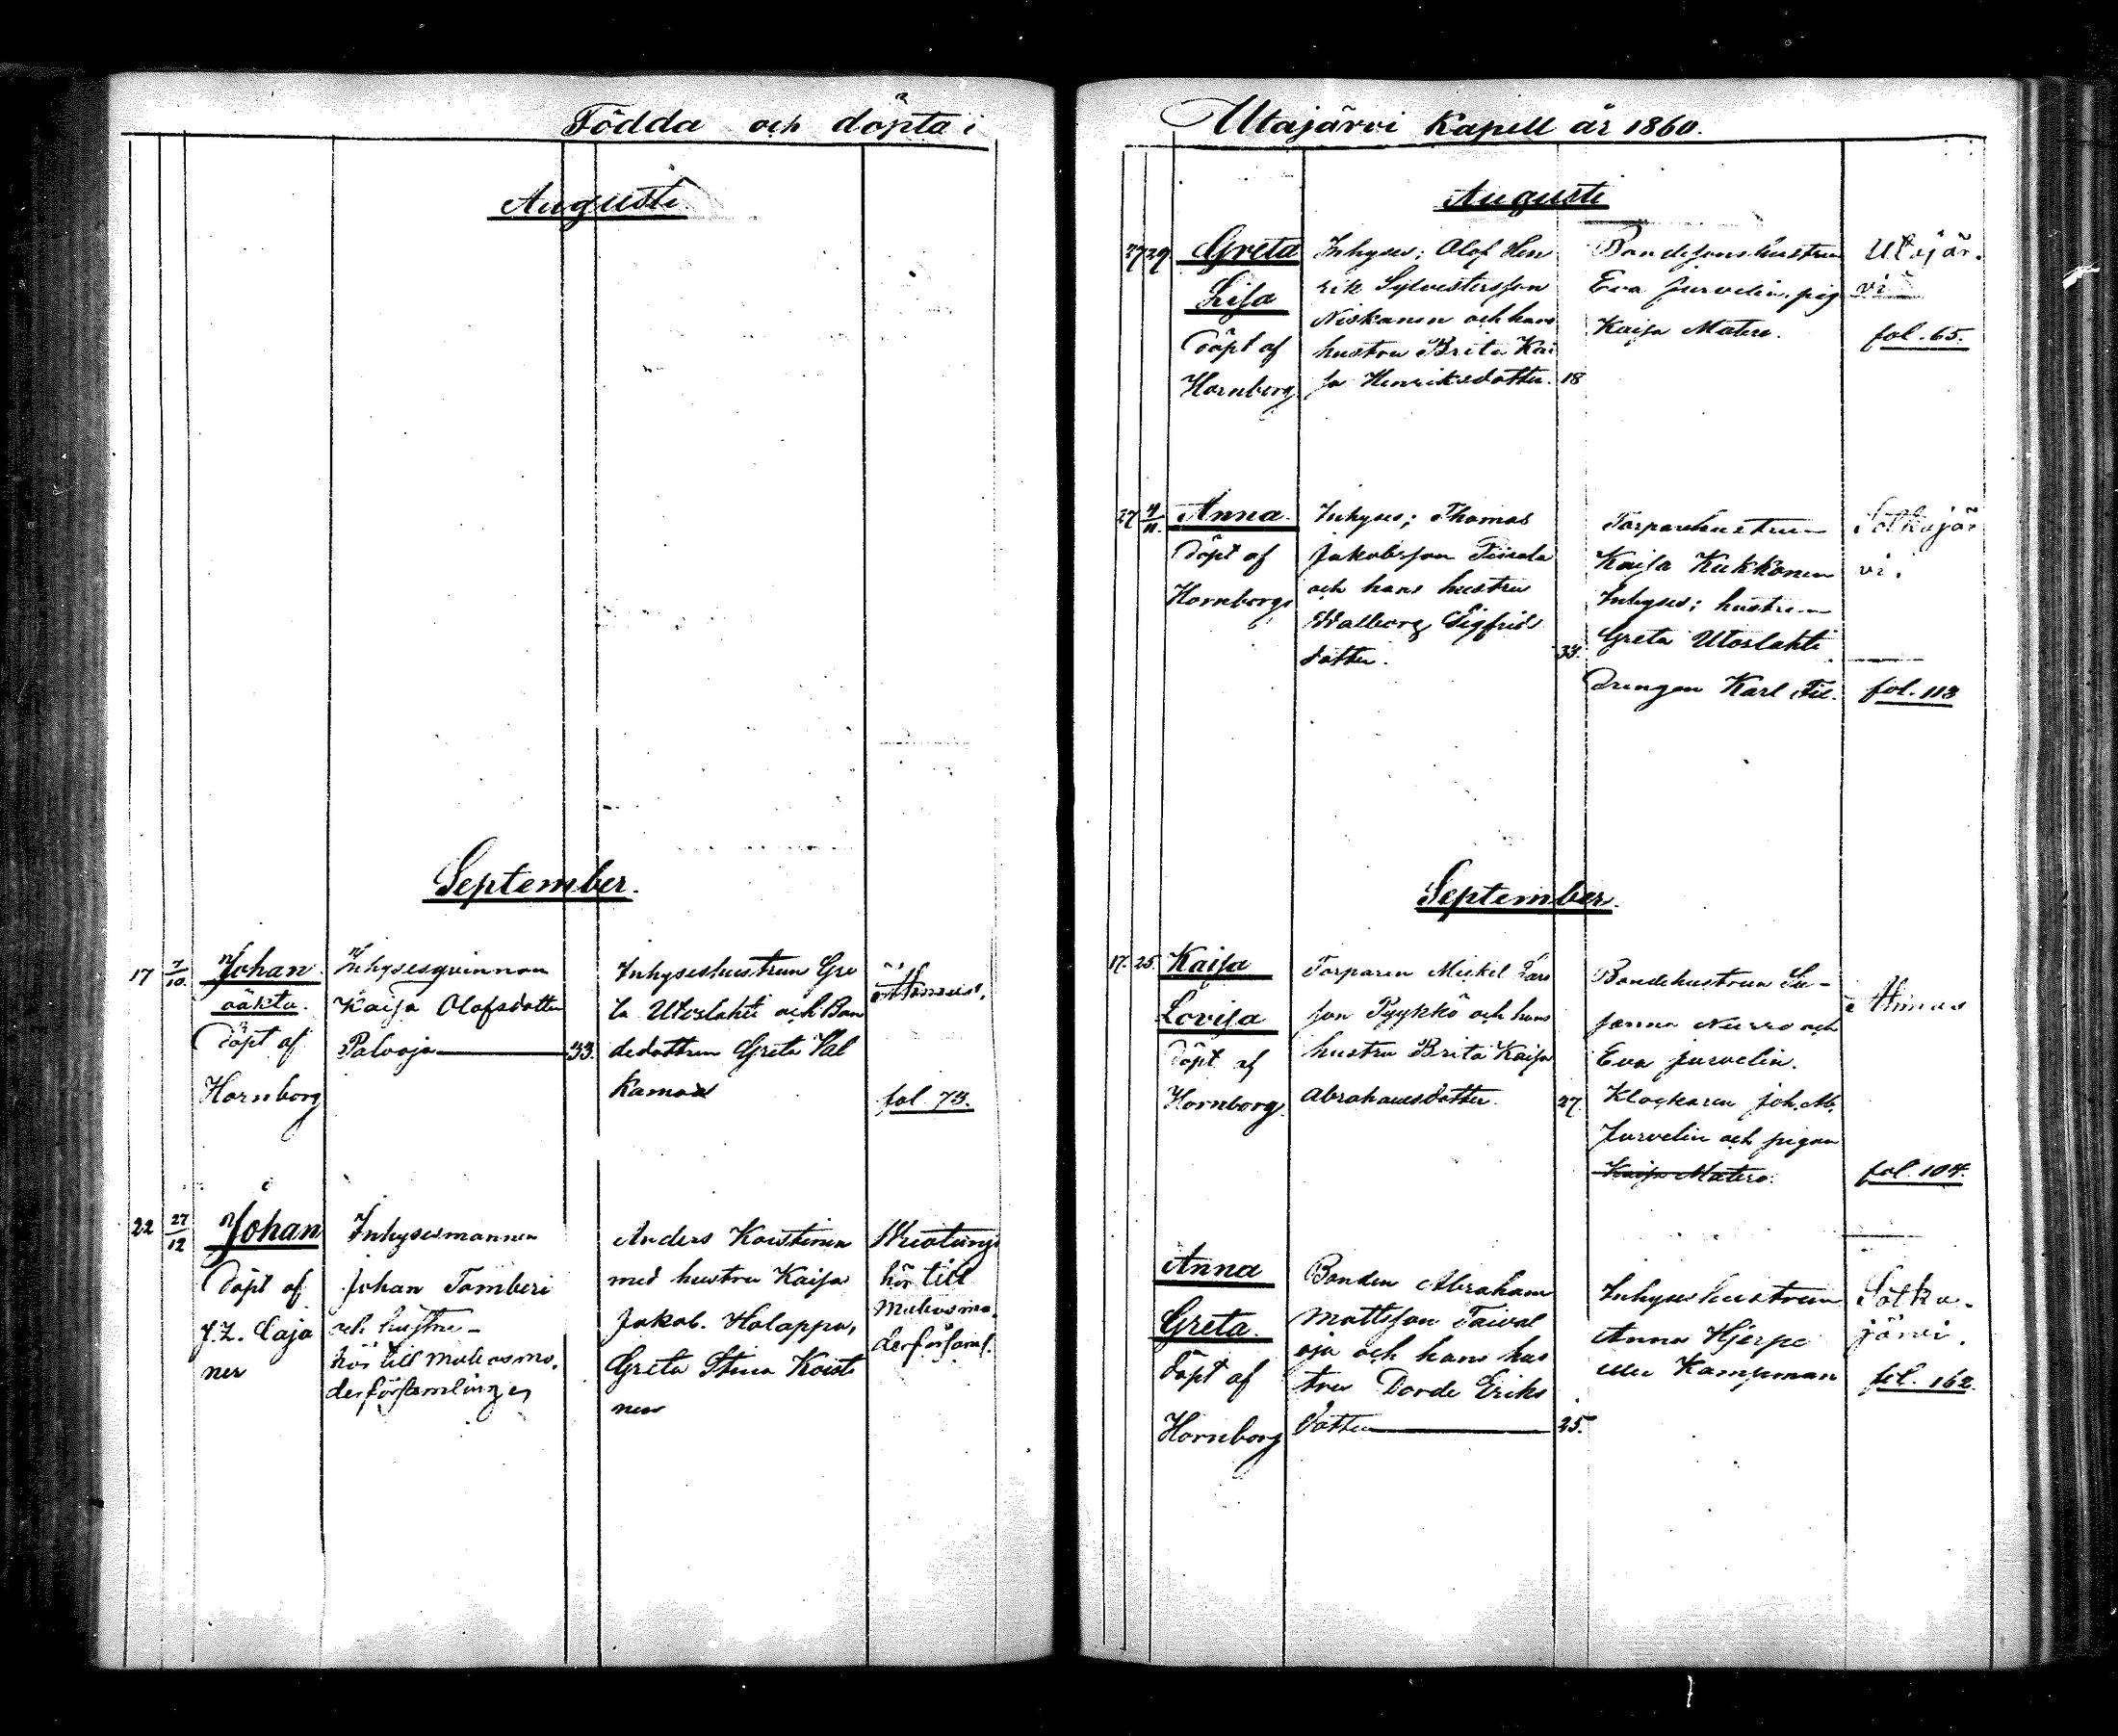 Födda och döpta i
Augusti
September.
17 7/10. Johan
oäkta.
döpt af
Hornborg
Inhysesqvinnan
Kaisa Olofsdotter
Palvaja 33.
Inhyseshustrun Gre
ta Utoslahti och Bon
dedottren Greta Val
kama
fol. 73.
22 27/12 Johan
döpt af
J. Z. Caja
ner
Inhysesmannen
Johan Tomberi
och hustru
hör till Muhos mo,
derförsamlingen
Anders Koistinen
med hustru Kaisa
Jakob. Holappa,
Greta Stina Koisti
nen
hör till
Muhos mo,
derförsaml.
Utajärvi Kapell år 1860.
Augusti
27 29 Greta
Lisa
döpt af
Hornborg
Inhyses; Olof Hen
rik Sylvestersson
Niskanen och hans
hustru Brita Kai
sa Henriksdotter. 18
Bondesonshustrun
Eva Jurvelin, pig
Kaisa Matero.
Utajär.
vi
fol. 65.
27 4/11. Anna
döpt af
Hornborg
Inhyses; Thomas
Jakobsson
och hans hustru
Walborg Sigfrids
dotter. 33.
Torparehustrun
Kaisa Kukkonen
Inhyses; hustrun
Greta Utoslahti
drengen Karl Fil.
Sotkajär
vi.
fol. 113
September.
17. 25. Kaisa
Lovisa
döpt af
Hornborg
Torparen Mickel Lars
son Pyykkö och hans
hustru Brita Kaisa
Abrahamsdotter. 27.
Bondehustrun Su-
sanna Nurro och
Eva Jurvelin.
Klockaren Joh. Ab.
Jurvelin och pigan
Kaisa Matero.
Ahmas
fol. 104.
Anna
Greta.
döpt af
Hornborg
Bonden Abraham
Mattsson Taival
oja och hans hus
tru Dorde Eriks
dotter 25.
Inhyseshustrun
Anna Hjerpe
eller Kampman
Sotka-
järvi.
fol. 162.